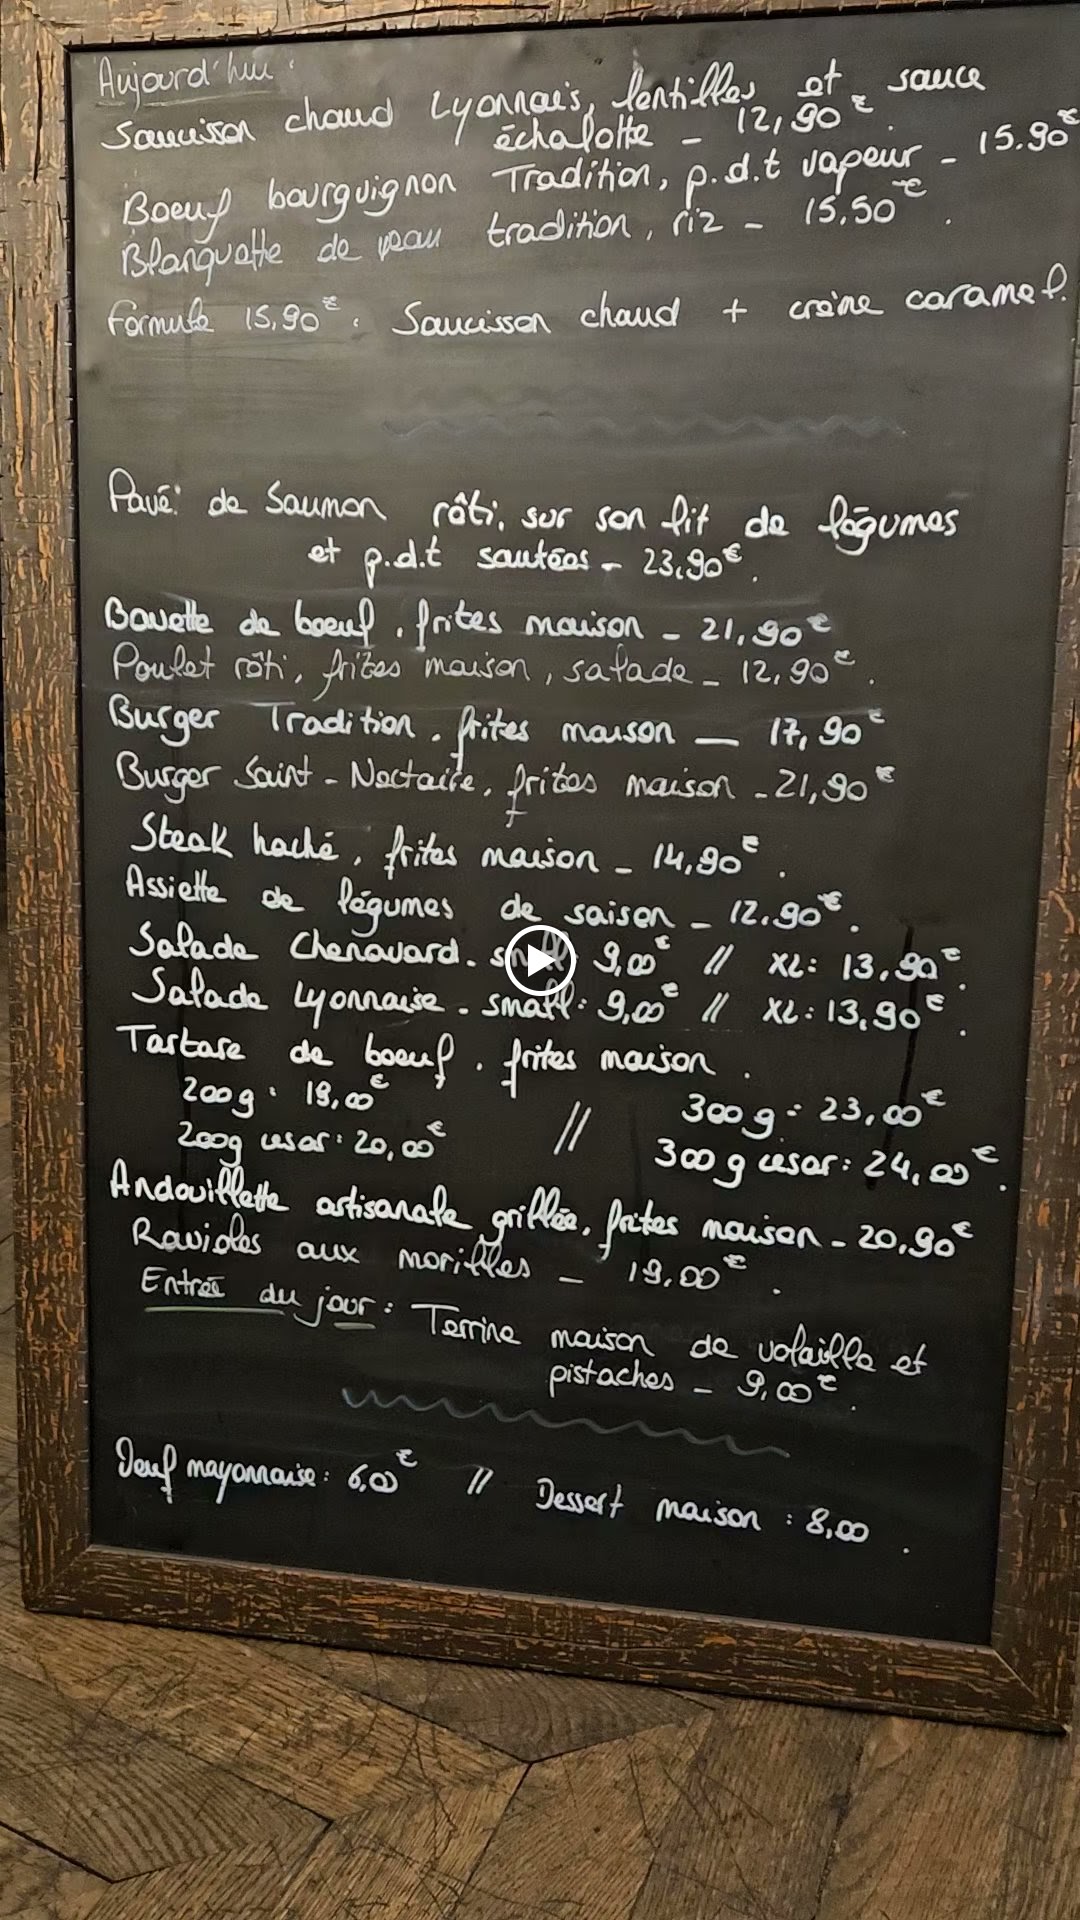 Aujourd'hui :
Saucisson chaud Lyonnais, lentilles et sauce
échalotte - 12,90€.
Boeuf bourguignon Tradition, p.d.t vapeur - 15.90€
Blanquette de veau tradition, riz - 15.50€.
Formule 15,90€ : Saucisson chaud + crème caramel.
Pavé de Saumon rôti, sur son lit de légumes
et p.d.t sautées - 23,90€.
Bavette de boeuf, frites maison - 21,90€
Poulet rôti, frites maison, salade - 12,90€.
Burger Tradition, frites maison - 17,90€
Burger Saint-Nectaire, frites maison - 21,90€
Steak haché, frites maison - 14,90€.
Assiette de légumes de saison - 12.90€.
Salade Chenavard - small: 9,00€ // XL: 13,90€.
Salade Lyonnaise - small: 9,00€ // XL: 13,90€.
Tartare de boeuf, frites maison.
200g : 19,00€ // 300g : 23,00€
200g cesar : 20,00€ // 300g cesar : 24,00€.
Andouillette artisanale grillée, frites maison - 20,90€
Ravioles aux morilles - 19.00€.
Entrée du jour : Terrine maison de volaille et
pistaches - 9,00€.
Oeuf mayonnaise : 6,00€ // Dessert maison : 8,00.